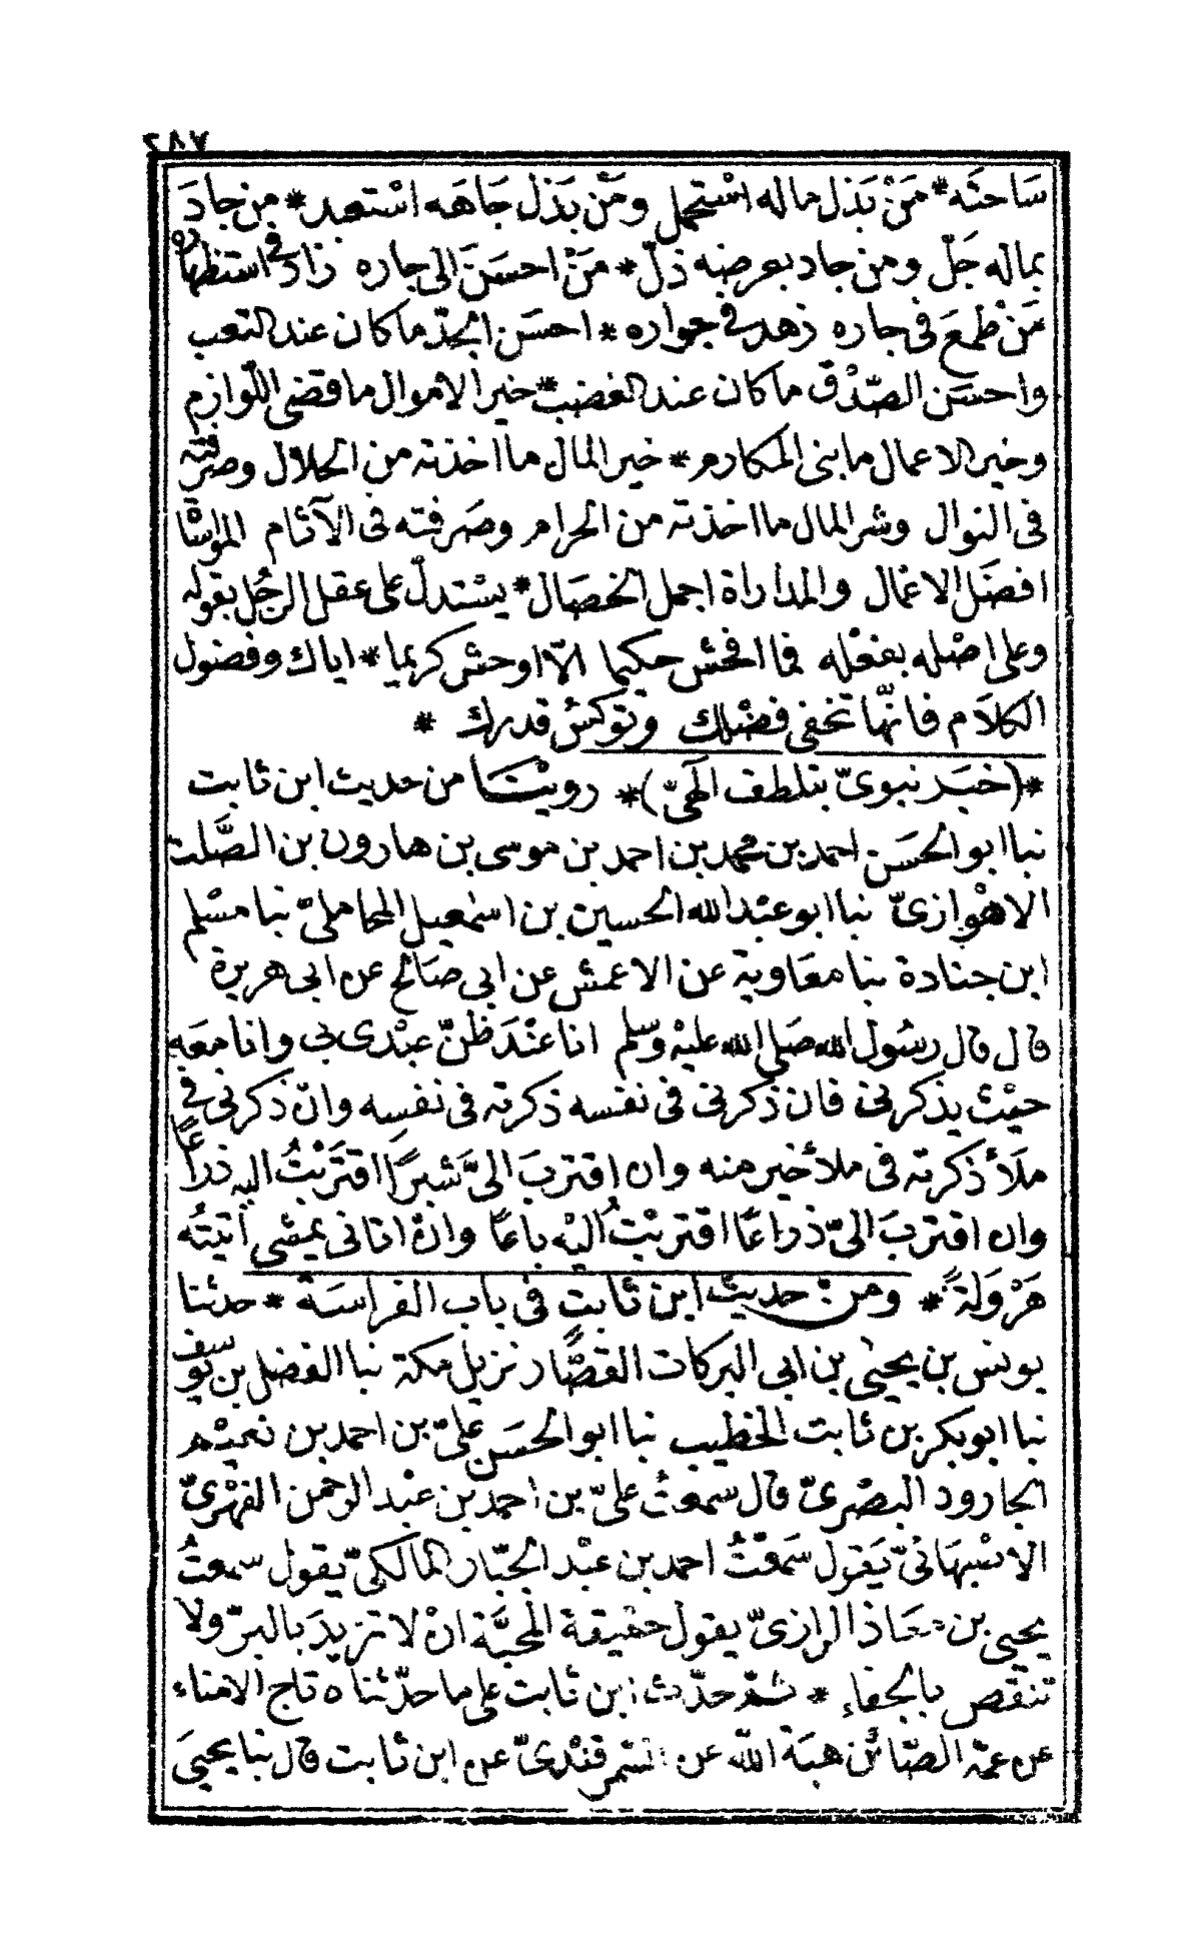 ٢٨٧
سَاحتَه * مَنْ بَذل ماله اسْتحمل ومَنْ بَذل جَاهَه اسْتعبد * من جادَ
بماله جَلّ ومن جاد بعرضه ذلّ * مَنْ احسَنَ الى جاره زاد في استظهاره
مَنْ طمعَ فى جاره زهد فى جواره * احسَن الجدّ ما كان عند التعب
واحسَن الصّدْق ما كان عند الغضب * خير الاموال ما قضى اللّوازم
وخير الاعمال ما بنى المكارم * خير المال ما اخذته من الحلال وصرفته
فى النوال وشر المال ما اخذته من الحرام وصَرفته فى الآثام المواساة
افضَل الاعمال والمداراة اجمل الخصَال * يسْتدلّ على عقل الرجُل بقوله
وعلى اصْله بفعْله فما افحش حكيما الاّ اوحش كريما * اياك وفضول
الكلاَم فانهّا تخفى فضْلك وتوكس قدرك *
* (خبَر نبوىّ بتلطف الهىّ) * رويْنَا من حديث ابن ثابت
نبا ابو الحسَن احمد بن محمد بن احمد بن موسى بن هارون بن الصَّلت
الاهْوازىّ نبا ابو عبْد الله الحسين بن اسمٰعيل المحاملىّ نبا مسْلم
ابن جنادة نبا معَاوية عن الاعمش عن ابى صَالح عن ابى هريرة
قال قال رسُول الله صَلى الله عليْه وسَلم انا عنْدَ ظنّ عبْدى بى وانا معَه
حيْث يذكرنى فان ذكرنى فى نفسه ذكرته فى نفسِه وانْ ذكرنى فى
ملَأ ذكرته فى ملأ خير منه وان اقتربَ الىَّ شبرًا اقترَبْتُ اليه ذراعًا
وان اقتربَ الىّ ذراعًا اقتربْتُ اليْه باعًا وانْ اتانى يمشى اتيتُه
هَرْوَلَةً * ومن حديث ابن ثابت فى باب الفراسَة * حدثنا
يونس بن يحيىٰ بن ابى البركات القصَّار نزيل مكة نبا الفضل بن يوسف
نبا ابو بكر بن ثابت الخطيب نبا ابو الحسَن علىّ بن احمد بن نعيْم
الجارود البصْرىّ قال سمعتُ علىّ بن احمد بن عبْد الرحمن الفهْرىّ
الاسْبهَانىّ يَقول سَمعْتُ احمد بن عبْد الجبّار المالكىّ يقول سمعتُ
يحيى بن معَاذ الرازىّ يقول حقيقة المحبَّة انْ لا تزيدَ بالبرّ ولا
تنقص بالجفاءِ * ثمّ حدّث ابن ثابت على ما حدّثناه تاج الامناء
عن عمّه الصّائن هبَة اللّه عن السّمرقنْدىّ عن ابن ثابت قال نبا يحيىَ